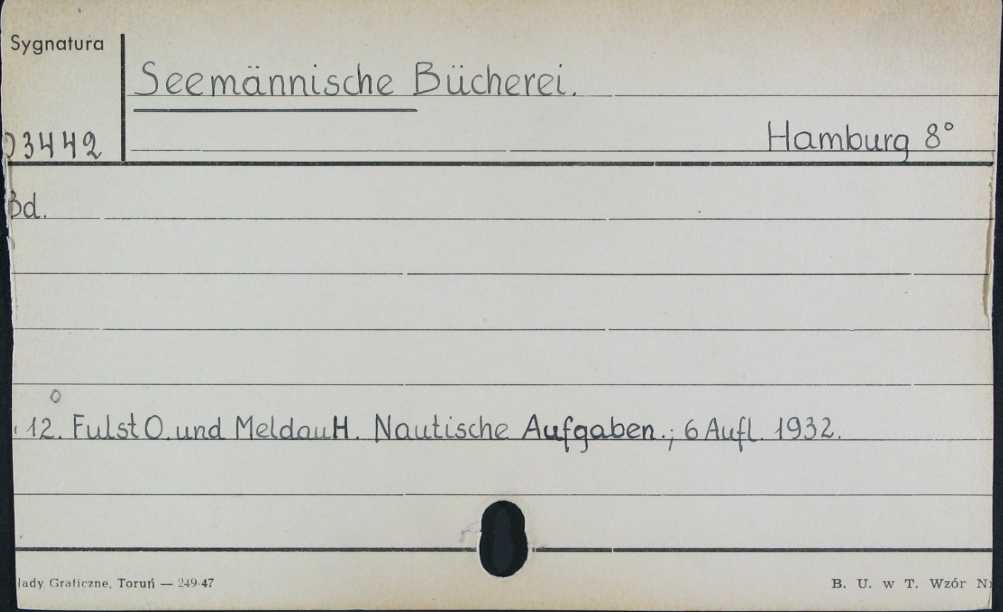 Sygnatura
Seemännische Bücherei.
03442
Hamburg 8°
Bd.
12. Fulst O. und Meldau H. Nautische Aufgaben.; 6 Aufl. 1932.
łady Graficzne, Toruń — 249-47
B. U. w T. Wzór Nr